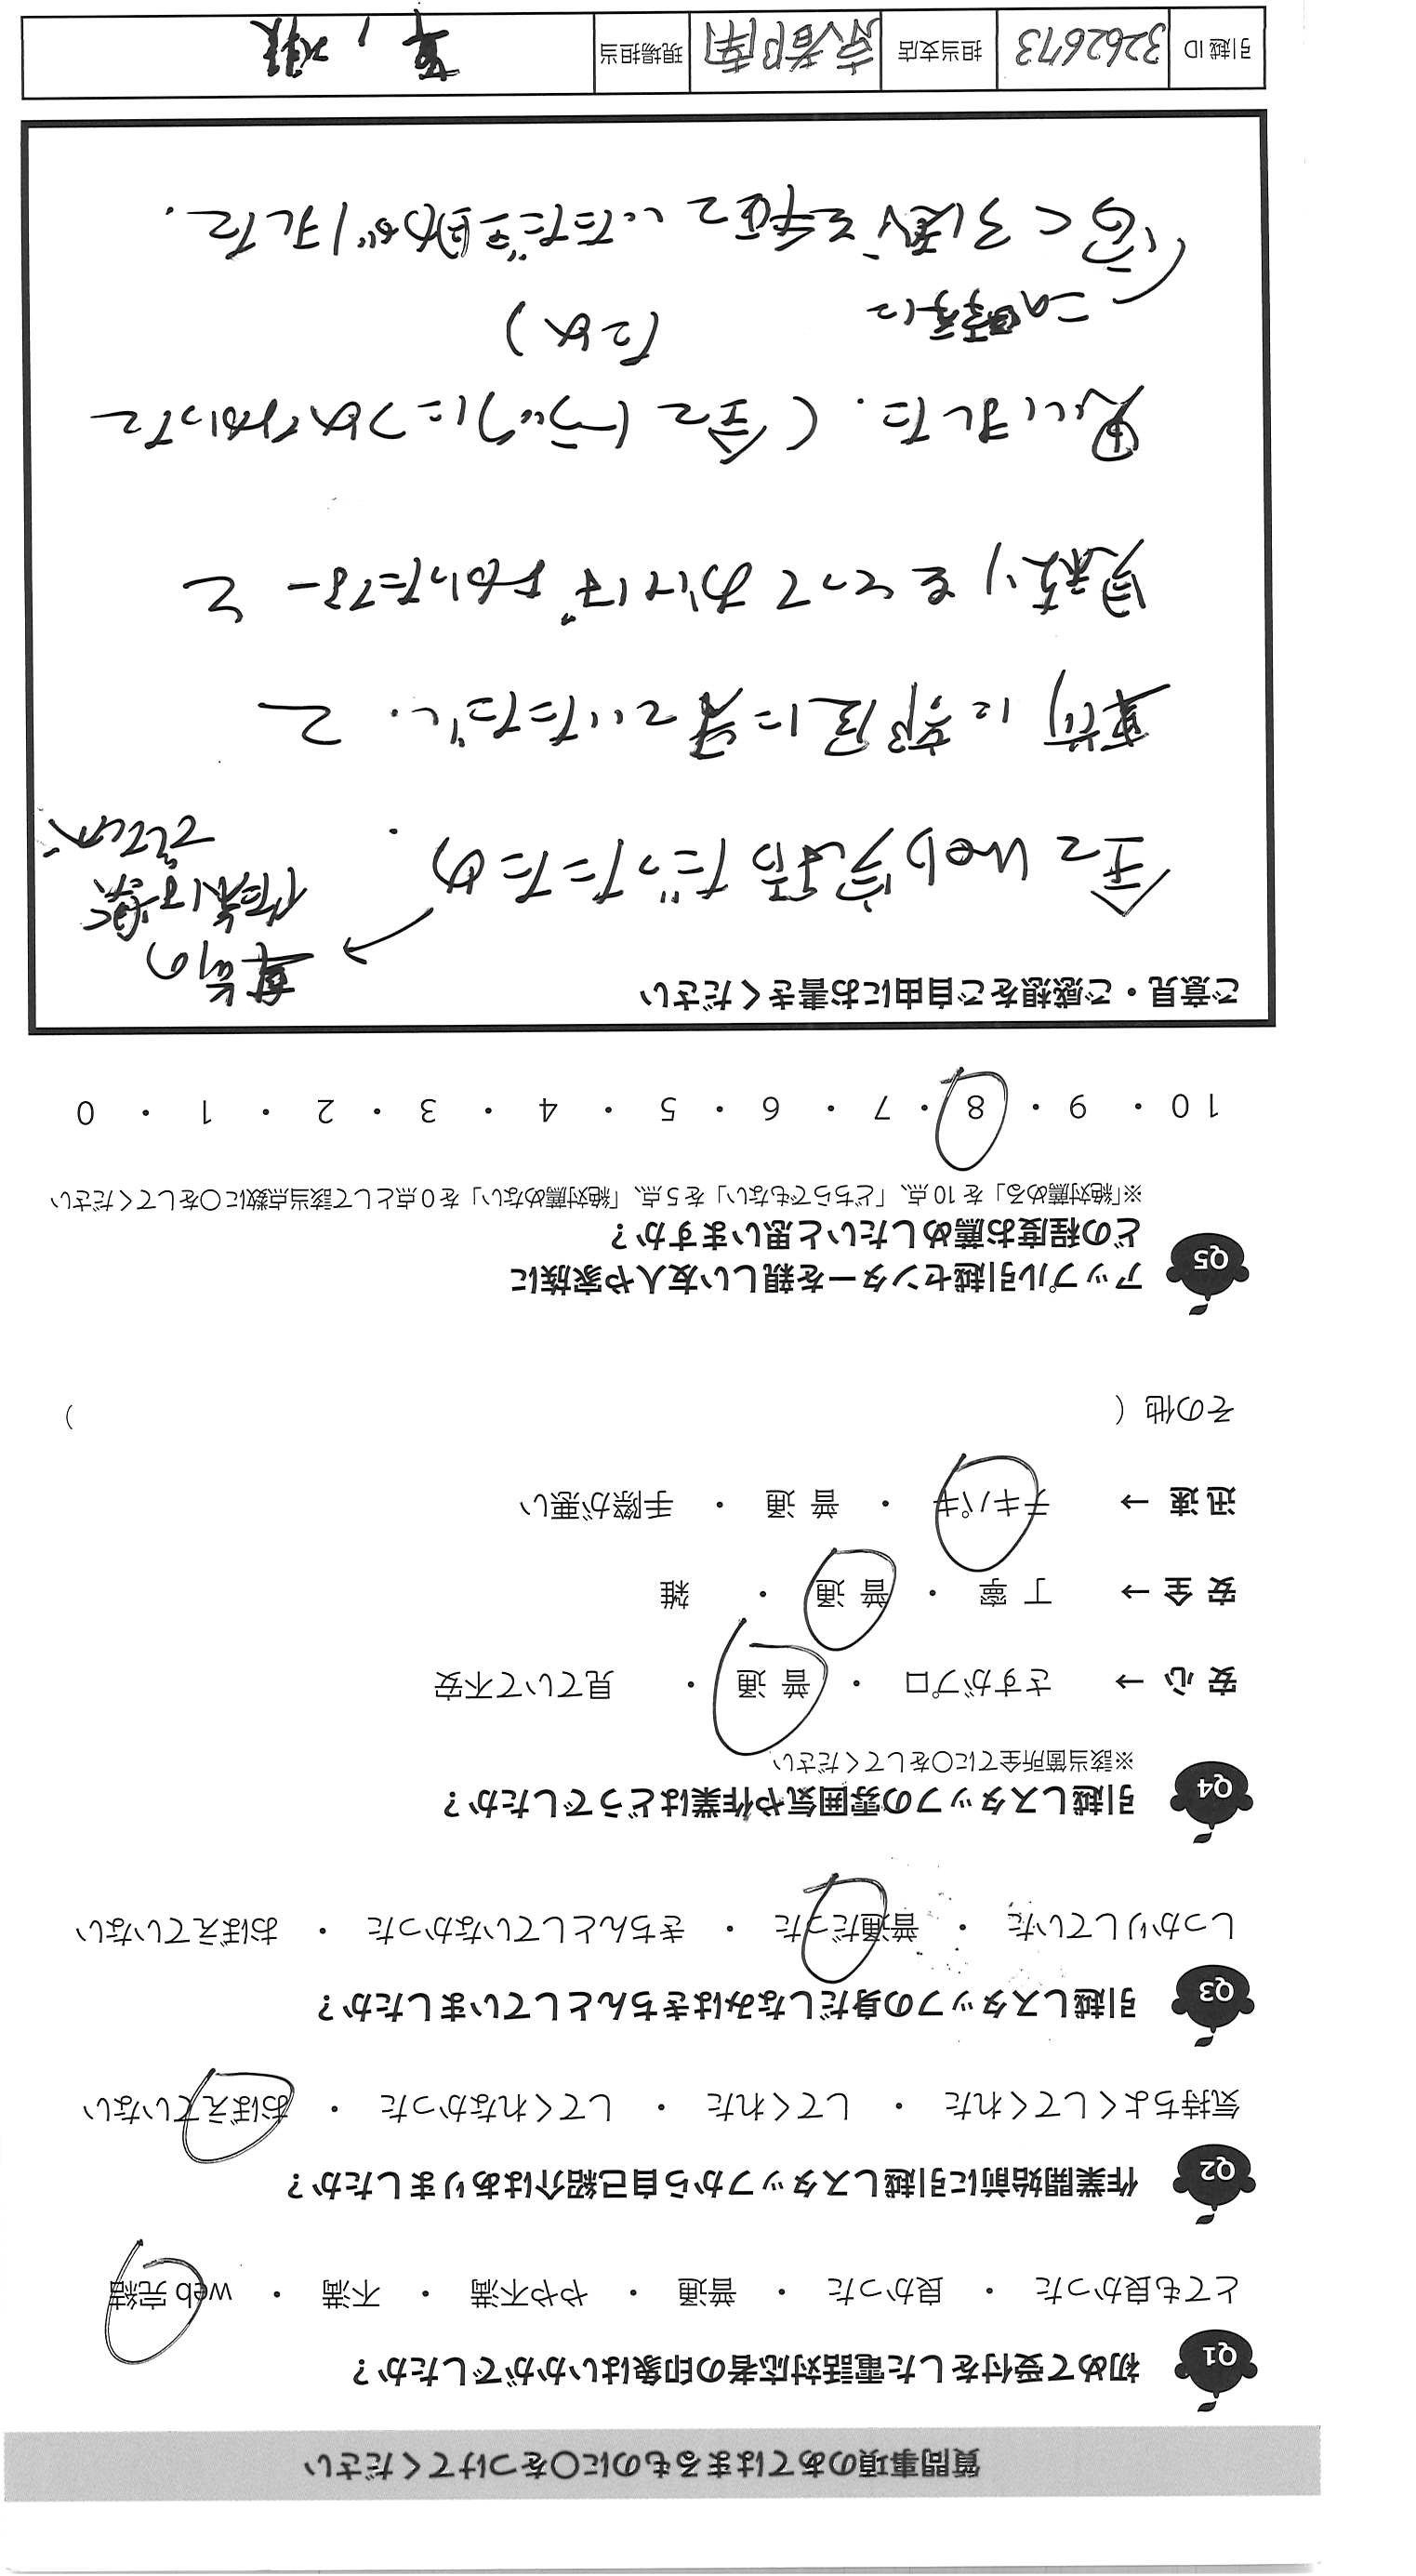 質問事項のあてはまるものに○をつけてください
Q1 初めて受付をした電話対応者の印象はいかがでしたか？
とても良かった ・ 良かった ・ 普通 ・ やや不満 ・ 不満 ・ web 完結
Q2 作業開始前に引越しスタッフから自己紹介はありましたか？
気持ちよくしてくれた ・ してくれた ・ してくれなかった ・ おぼえていない
Q3 引越しスタッフの身だしなみはきちんとしていましたか？
しっかりしていた ・ 普通だった ・ きちんとしていなかった ・ おぼえていない
Q4 引越しスタッフの雰囲気や作業はどうでしたか？
※該当箇所全てに○をしてください
安 心 → さすがプロ ・ 普 通 ・ 見ていて不安
安 全 → 丁 寧 ・ 普 通 ・ 雑
迅 速 → テキパキ ・ 普 通 ・ 手際が悪い
その他（ ）
Q5 アップル引越センターを親しい友人や家族に
どの程度お薦めしたいと思いますか？
※「絶対薦める」を 10 点、「どちらでもない」を 5 点、「絶対薦めない」を 0 点として該当点数に○をしてください
10 ・ 9 ・ 8 ・ 7 ・ 6 ・ 5 ・ 4 ・ 3 ・ 2 ・ 1 ・ 0
ご意見・ご感想をご自由にお書きください
全てWeb完結だったため
事前の
作業
事前に部屋に来ていただいて
見積りをとっておけばよかったなーと
思いました。（全て
この時季に
安く引越を
いただき助かりました。
引越 ID 3262673 担当支店 京都南 現場担当